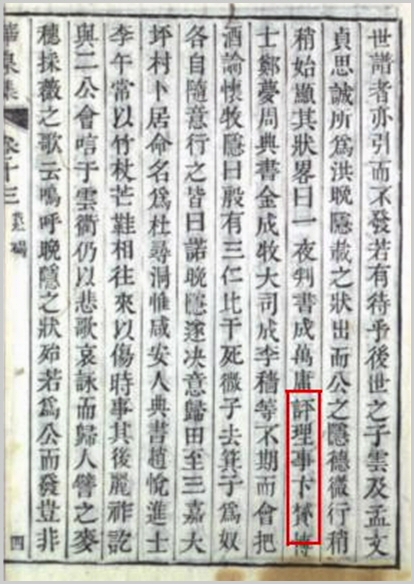 世譜者亦引而不發若有待乎後世之子雲及孟文
貞思誠所爲洪晩隱載之狀出而公之隱德微行稍
稍始顯其狀畧曰一夜判書成萬庸評理事卞贇博
士鄭夢周典書金成牧大司成李穡等不期而會把
酒論懷牧隱曰殷有三仁比干死微子去箕子爲奴
各自隨意行之皆曰諾晩隱遂决意歸田至三嘉大
坪村卜居命名爲杜尋洞惟咸安人典書趙悅進士
李午常以竹杖芒鞋相往來以傷時事其後麗祚訖
與二公會唁于雲衢仍以悲歌哀詠而歸人譬之麥
穗採薇之歌云嗚呼晩隱之狀殆若爲公而發豈非
華泉集 卷之十三 四